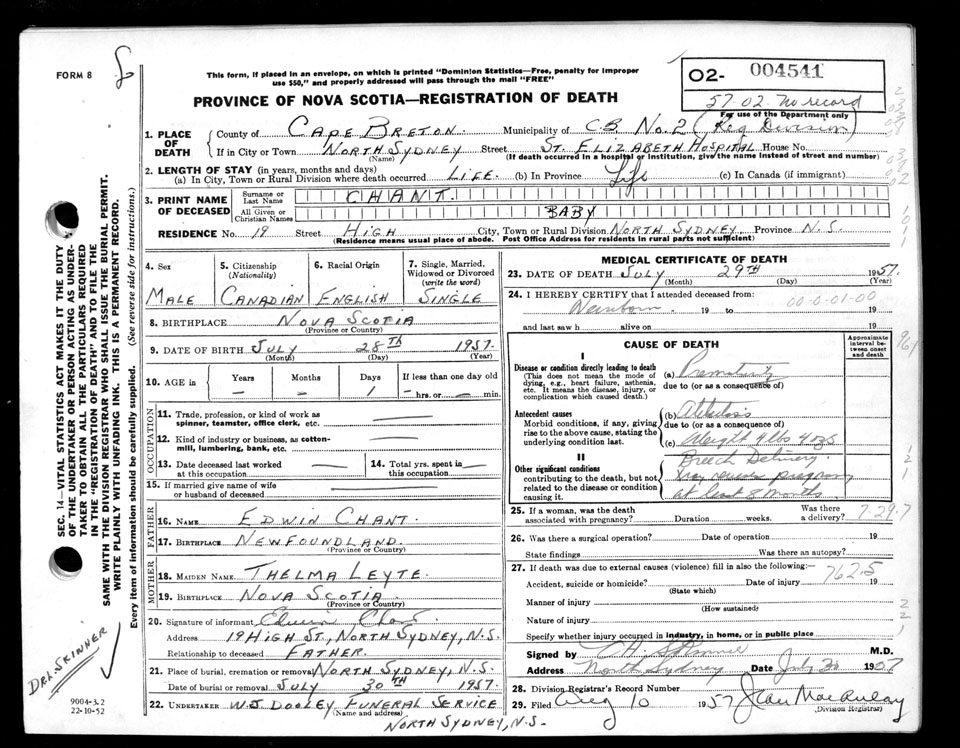 FORM 8
This form, if placed in an envelope, on which is printed "Dominion Statistics—Free, penalty for improper
use $50," and properly addressed will pass through the mail "FREE"
PROVINCE OF NOVA SCOTIA—REGISTRATION OF DEATH
02- 004541
57-02 No record
For use of the Department only
1. PLACE OF DEATH
County of CAPE BRETON Municipality of C.B. No. 2 (Reg Division)
If in City or Town NORTH SYDNEY Street ST. ELIZABETH HOSPITAL House No.
(Name) (If death occurred in a hospital or institution, give the name instead of street and number)
2. LENGTH OF STAY (in years, months and days)
(a) In City, Town or Rural Division where death occurred LIFE (b) In Province Life (c) In Canada (if immigrant)
3. PRINT NAME OF DECEASED
Surname or Last Name CHANT.
All Given or Christian Names BABY
RESIDENCE No. 19 Street HIGH City, Town or Rural Division NORTH SYDNEY Province N.S.
(Residence means usual place of abode. Post Office Address for residents in rural parts not sufficient)
4. Sex
MALE
5. Citizenship
(Nationality)
CANADIAN
6. Racial Origin
ENGLISH
7. Single, Married,
Widowed or Divorced
(write the word)
SINGLE
8. BIRTHPLACE NOVA SCOTIA
(Province or Country)
9. DATE OF BIRTH JULY 28TH 1957
(Month) (Day) (Year)
10. AGE in Years Months Days If less than one day old
— — 1 — hrs. or — min.
OCCUPATION
11. Trade, profession, or kind of work as
spinner, teamster, office clerk, etc. —
12. Kind of industry or business, as cotton-
mill, lumbering, bank, etc. —
13. Date deceased last worked
at this occupation —
14. Total yrs. spent in
this occupation —
15. If married give name of wife
or husband of deceased —
FATHER
16. NAME EDWIN CHANT.
17. BIRTHPLACE NEWFOUNDLAND.
(Province or Country)
MOTHER
18. MAIDEN NAME THELMA LEYTE.
19. BIRTHPLACE NOVA SCOTIA
(Province or Country)
20. Signature of informant Edwin Chant
Address 19 HIGH ST., NORTH SYDNEY, N.S.
Relationship to deceased FATHER.
21. Place of burial, cremation or removal NORTH SYDNEY, N.S.
Date of burial or removal JULY 30TH 1957.
22. UNDERTAKER W.J. DOOLEY FUNERAL SERVICE
(Name and address)
NORTH SYDNEY, N.S.
MEDICAL CERTIFICATE OF DEATH
23. DATE OF DEATH JULY 29TH 1957.
(Month) (Day) (Year)
24. I HEREBY CERTIFY that I attended deceased from:
00-0-01-00
Newborn 19 to 19
and last saw h alive on 19
CAUSE OF DEATH
Approximate
interval between
onset
and death
I
Disease or condition directly leading to death
(This does not mean the mode of
dying, e.g., heart failure, asthenia,
etc. It means the disease, injury, or
complication which caused death.)
(a) Prematurity
due to (or as a consequence of)
Antecedent causes
Morbid conditions, if any, giving
rise to the above cause, stating the
underlying condition last.
(b)
due to (or as a consequence of)
(c) Weight 4 lbs 4 ozs
II
Other significant conditions
contributing to the death, but not
related to the disease or condition
causing it.
Breech Delivery
at least 8 months
25. If a woman, was the death
associated with pregnancy? Duration weeks. Was there
a delivery? 7-29-7
26. Was there a surgical operation? Date of operation 19
State findings Was there an autopsy?
27. If death was due to external causes (violence) fill in also the following:—
762.5
Accident, suicide or homicide? Date of injury 19
(State which)
Manner of injury
(How sustained)
Nature of injury
Specify whether injury occurred in industry, in home, or in public place
Signed by M.D.
Address North Sydney Date July 30 1957
28. Division Registrar's Record Number
29. Filed Aug 10 1957 Jean MacAulay
(Division Registrar)
SEC. 14—VITAL STATISTICS ACT MAKES IT THE DUTY
OF THE UNDERTAKER OR PERSON ACTING AS UNDER-
TAKER TO OBTAIN ALL THE PARTICULARS REQUIRED
IN THE "REGISTRATION OF DEATH" AND TO FILE THE
SAME WITH THE DIVISION REGISTRAR WHO SHALL ISSUE THE BURIAL PERMIT.
WRITE PLAINLY WITH UNFADING INK. THIS IS A PERMANENT RECORD.
Every item of information should be carefully supplied. (See reverse side for instructions.)
DR. L. SKINNER
9004-3.2
22-10-52